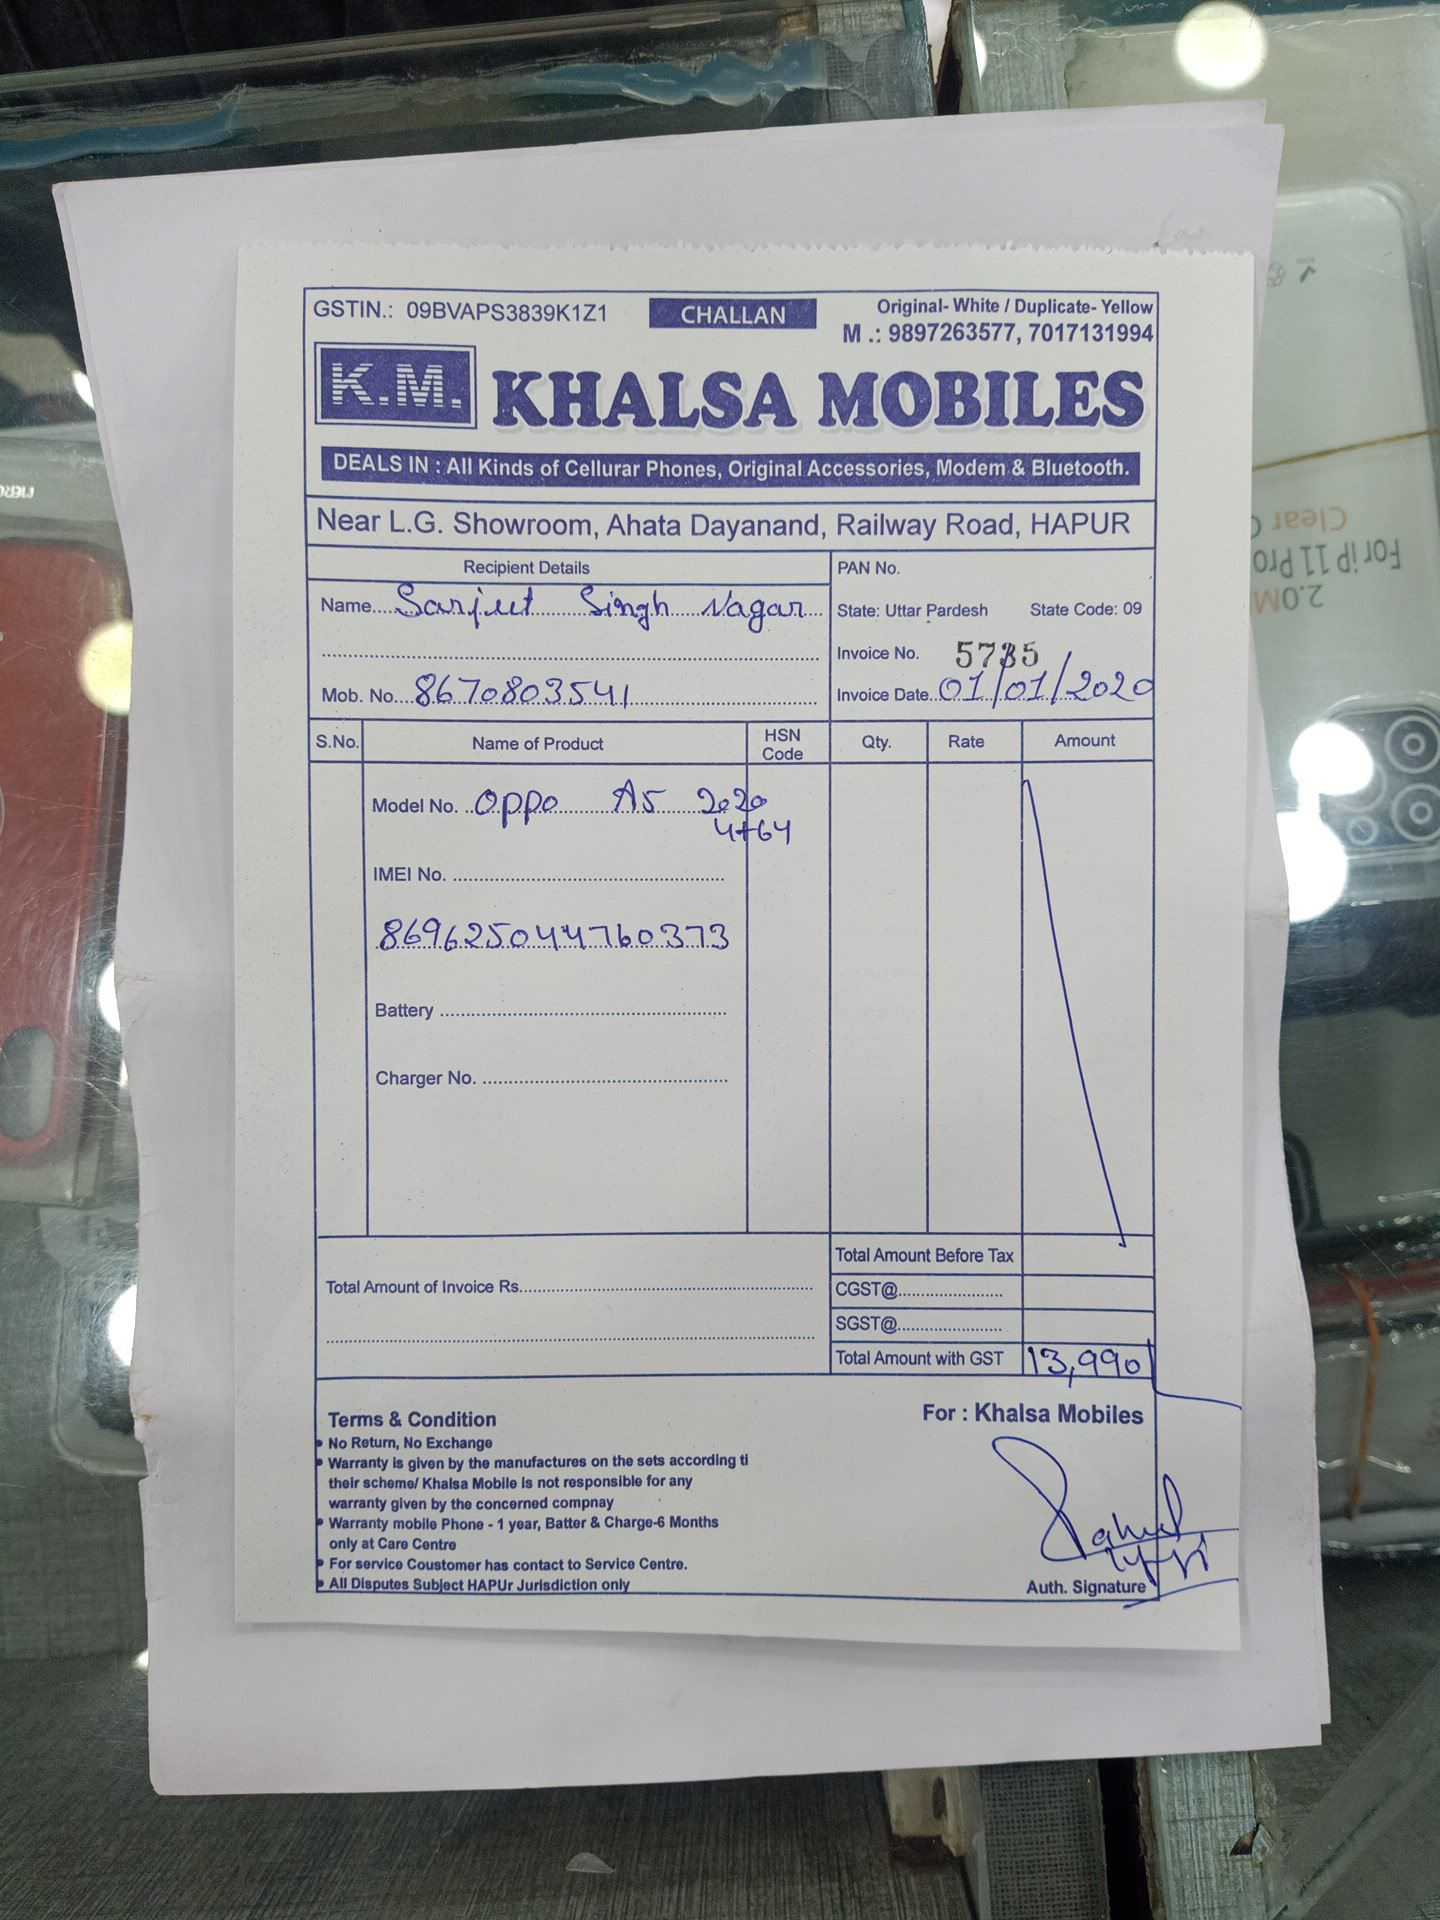 GSTIN.: 09BVAPS3839K1Z1
CHALLAN
Original- White / Duplicate- Yellow
M .: 9897263577, 7017131994
K.M. KHALSA MOBILES
DEALS IN : All Kinds of Cellurar Phones, Original Accessories, Modem & Bluetooth.
Near L.G. Showroom, Ahata Dayanand, Railway Road, HAPUR
Recipient Details
Name Sarjeet Singh Nagar
Mob. No. 8670803541
PAN No.
State: Uttar Pardesh State Code: 09
Invoice No. 5735
Invoice Date 01/01/2020
S.No. Name of Product HSN Code Qty. Rate Amount
Model No. Oppo A5 2020
4+64
IMEI No.
869625044760373
Battery
Charger No.
Total Amount of Invoice Rs.
Total Amount Before Tax
CGST@
SGST@
Total Amount with GST 13,990
Terms & Condition
• No Return, No Exchange
• Warranty is given by the manufactures on the sets according ti
their scheme/ Khalsa Mobile is not responsible for any
warranty given by the concerned compnay
• Warranty mobile Phone - 1 year, Batter & Charge-6 Months
only at Care Centre
• For service Coustomer has contact to Service Centre.
• All Disputes Subject HAPUr Jurisdiction only
For : Khalsa Mobiles
Rahul
Auth. Signature
Clear
For iP 11 Pro
2.0M